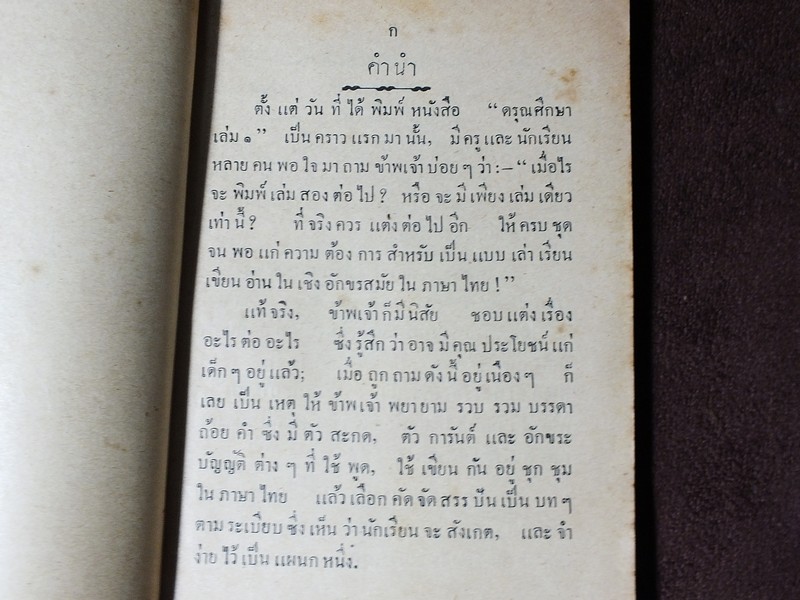 ก
คำนำ
ตั้ง แต่ วัน ที่ ได้ พิมพ์ หนังสือ “ ดรุณศึกษา
เล่ม ๑ ” เป็น คราว แรก มา นั้น, มี ครู และ นักเรียน
หลาย คน พอ ใจ มา ถาม ข้าพเจ้า บ่อย ๆ ว่า :— “ เมื่อไร
จะ พิมพ์ เล่ม สอง ต่อ ไป ? หรือ จะ มี เพียง เล่ม เดียว
เท่า นี้ ? ที่ จริง ควร แต่ง ต่อ ไป อีก ให้ ครบ ชุด
จน พอ แก่ ความ ต้อง การ สำหรับ เป็น แบบ เล่า เรียน
เขียน อ่าน ใน เชิง อักขรสมัย ใน ภาษา ไทย ! ”
แท้ จริง, ข้าพเจ้า ก็ มี นิสัย ชอบ แต่ง เรื่อง
อะไร ต่อ อะไร ซึ่ง รู้สึก ว่า อาจ มี คุณ ประโยชน์ แก่
เด็ก ๆ อยู่ แล้ว; เมื่อ ถูก ถาม ดัง นี้ อยู่ เนือง ๆ ก็
เลย เป็น เหตุ ให้ ข้าพเจ้า พยายาม รวบ รวม บรรดา
ถ้อย คำ ซึ่ง มี ตัว สะกด, ตัว การันต์ และ อักขระ
บัญญัติ ต่าง ๆ ที่ ใช้ พูด, ใช้ เขียน กัน อยู่ ชุก ชุม
ใน ภาษา ไทย แล้ว เลือก คัด จัด สรร ปัน เป็น บท ๆ
ตาม ระเบียบ ซึ่ง เห็น ว่า นักเรียน จะ สังเกต, และ จำ
ง่าย ไว้ เป็น แผนก หนึ่ง.